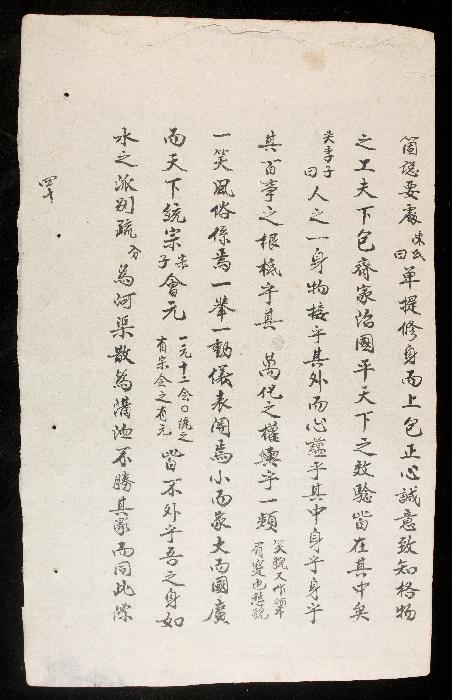 箇認要處陳氏曰單提修身而上包正心誠意致知格物
之工夫下包齊家治國平天下之效驗皆在其中矣
李子曰人之一身物接乎其外而心蘊乎其中身乎身乎
其百事之根柢乎其萬化之權輿乎一頻
一笑風俗係焉一舉一動儀表關焉小而家大而國廣
而天下統宗朱子會元一元十二会〇統之有宗会之有元皆不外乎吾之身如
水之派別疏分為河渠散為溝洫不勝其衆而同此深
四十